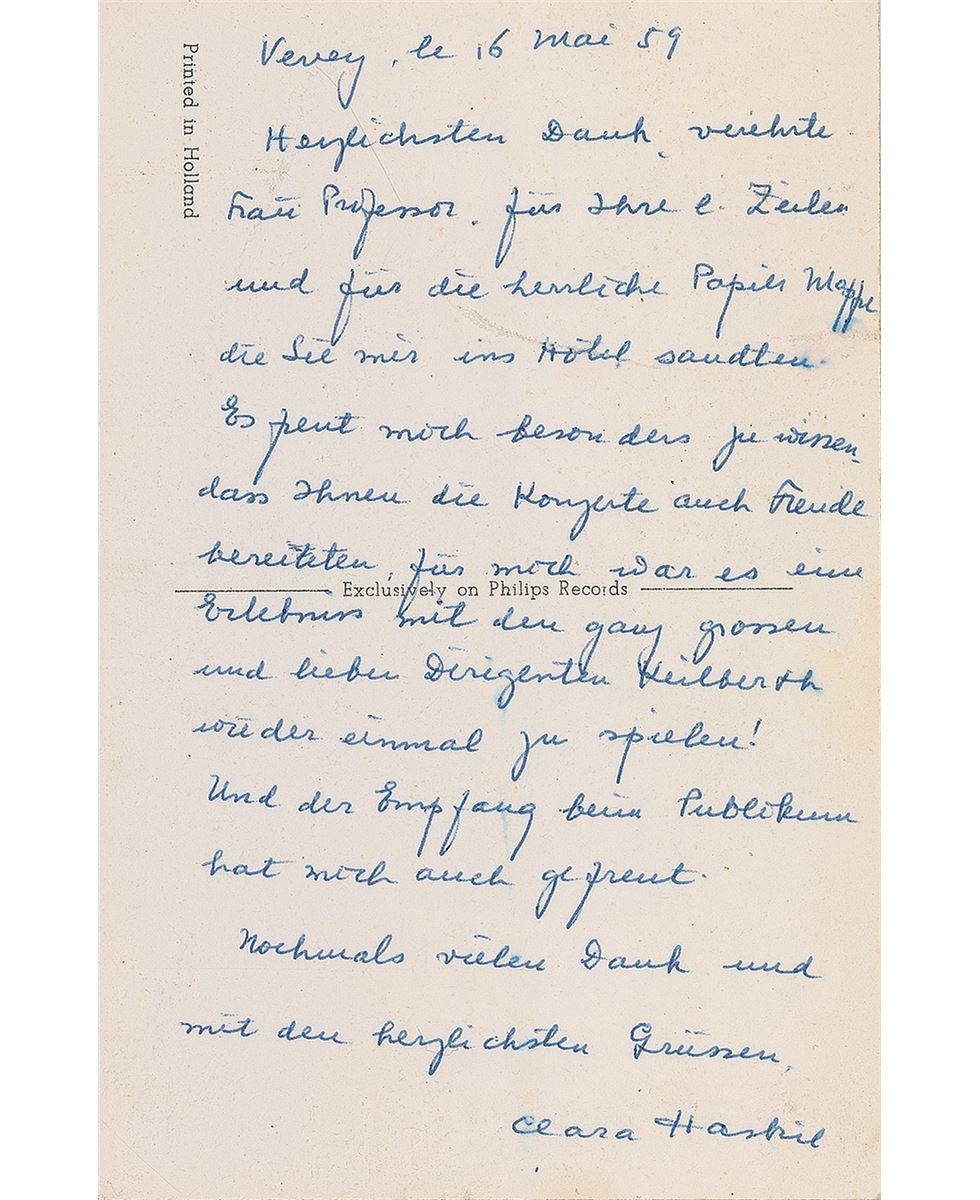 Vevey, le 16 Mai 59
Herzlichsten Dank, verehrte
Frau Professor, für Ihre l. Zeilen
und für die herrliche Papier Mappe
die Sie mir ins Hôtel sandten.
Es freut mich besonders zu wissen,
dass Ihnen die Konzerte auch Freude
bereiteten, für mich war es ein
Exclusively on Philips Records
Erlebniss mit den ganz grossen
und lieben Dirigenten Keilberth
wieder einmal zu spielen!
Und der Empfang beim Publikum
hat mich auch gefreut.
Nochmals vielen Dank und
mit den herzlichsten Grüssen,
Clara Haskil
Printed in Holland